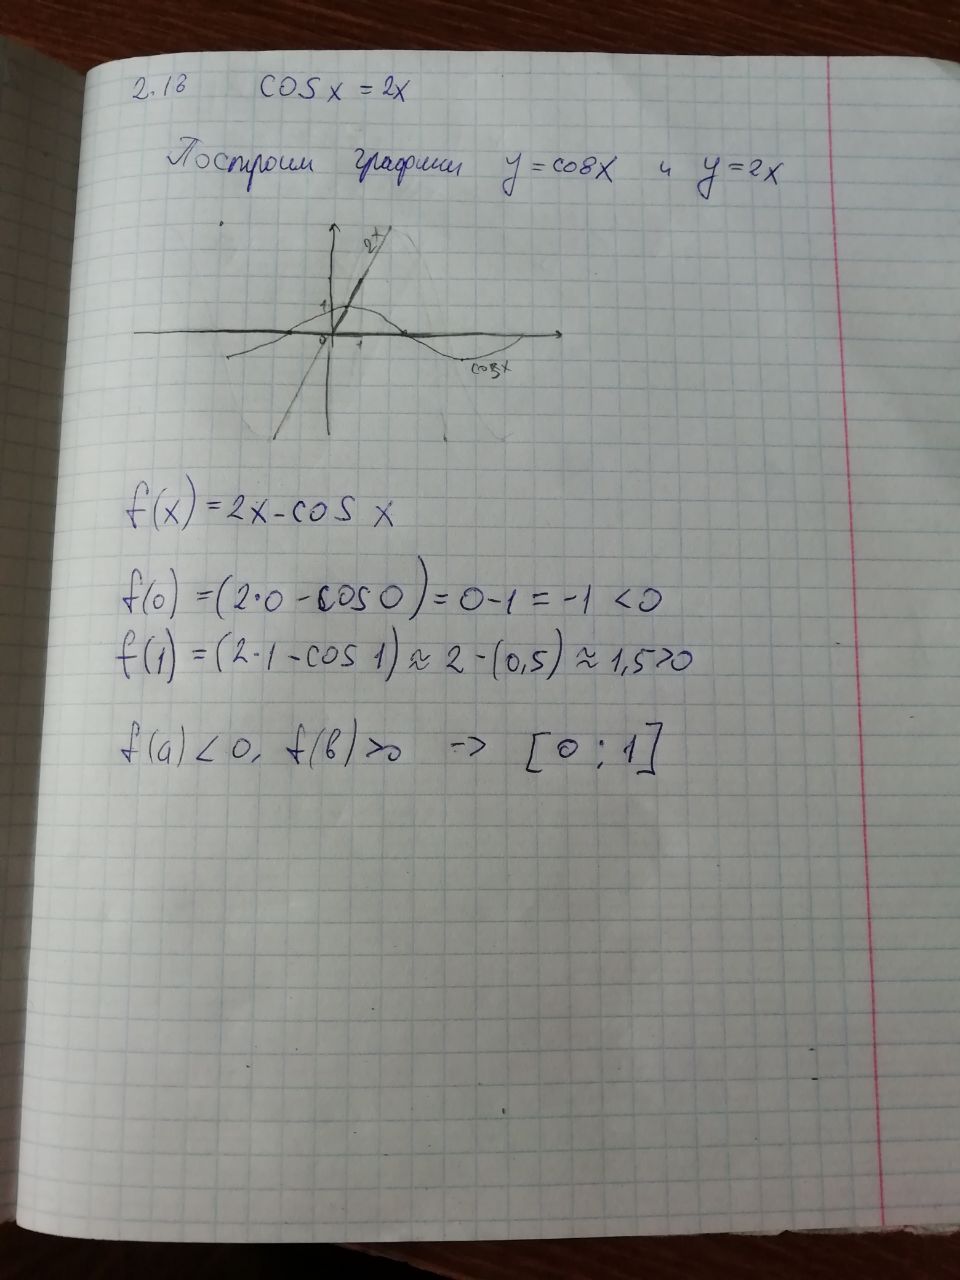 2.18 cos x = 2x
Построим графики y = cos x и y = 2x
2x
1
0 1
cos x
f(x) = 2x - cos x
f(0) = (2·0 - cos 0) = 0 - 1 = -1 < 0
f(1) = (2·1 - cos 1) ≈ 2 - (0,5) ≈ 1,5 > 0
f(a) < 0, f(b) > 0 -> [0 ; 1]